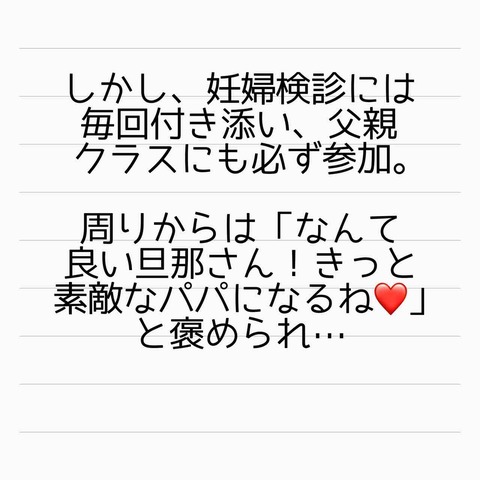 しかし、妊婦検診には
毎回付き添い、父親
クラスにも必ず参加。
周りからは「なんて
良い旦那さん！きっと
素敵なパパになるね❤️」
と褒められ…